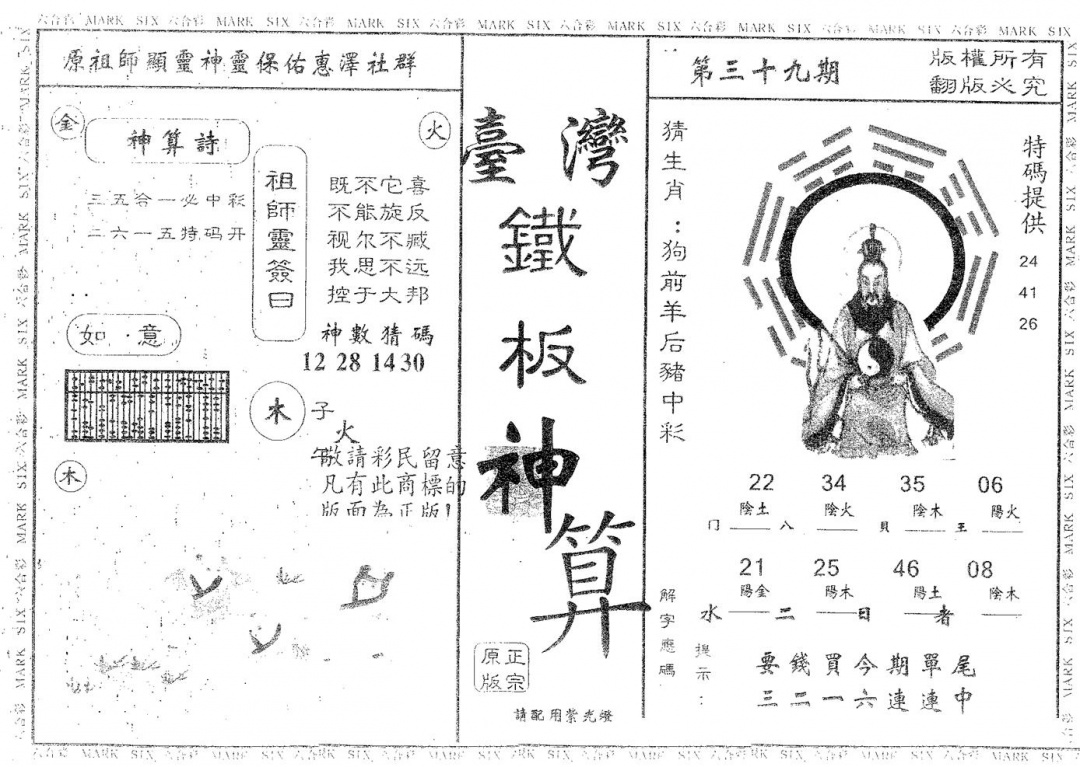 六合彩 MARK SIX 六合彩 MARK SIX 六合彩 MARK SIX 六合彩 MARK SIX 六合彩 MARK SIX 六合彩 MARK SIX 六合彩 MARK SIX 六合彩 MARK SIX
原祖師顯靈神靈保佑惠澤社群
金
神算詩
火
三五合一必中彩
二六一五特码开
祖師靈簽曰
既不它喜
不能旋反
视尔不臧
我思不远
控于大邦
如·意
神數猜碼
12 28 14 30
木
子
火
午
木
敬請彩民留意
凡有此商標的
版面為正版!
臺灣
鐵
板
神
算
正宗
原版
請配用紫光燈
第三十九期
版權所有
翻版必究
猜生肖:狗前羊后豬中彩
特碼提供
24
41
26
22 34 35 06
陰土 陰火 陰木 陽火
门 八 貝 王
21 25 46 08
陽金 陽木 陽土 陰木
水 二 日 者
解字應碼
提示:
要錢買今期單尾
三二一六連連中
六合彩 MARK SIX 六合彩 MARK SIX 六合彩 MARK SIX 六合彩 MARK SIX 六合彩 MARK SIX 六合彩 MARK SIX 六合彩 MARK SIX 六合彩 MARK SIX